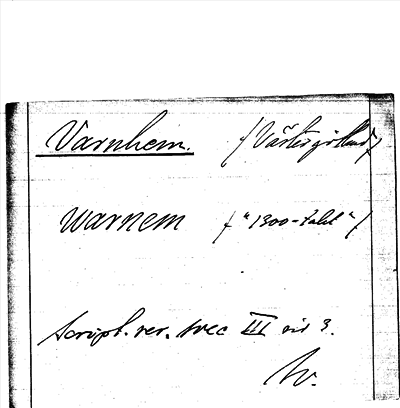 Varnhem. (Västergötland)
Warnem ("1300-talet")
Script. rer. svec III sid 3.
W.